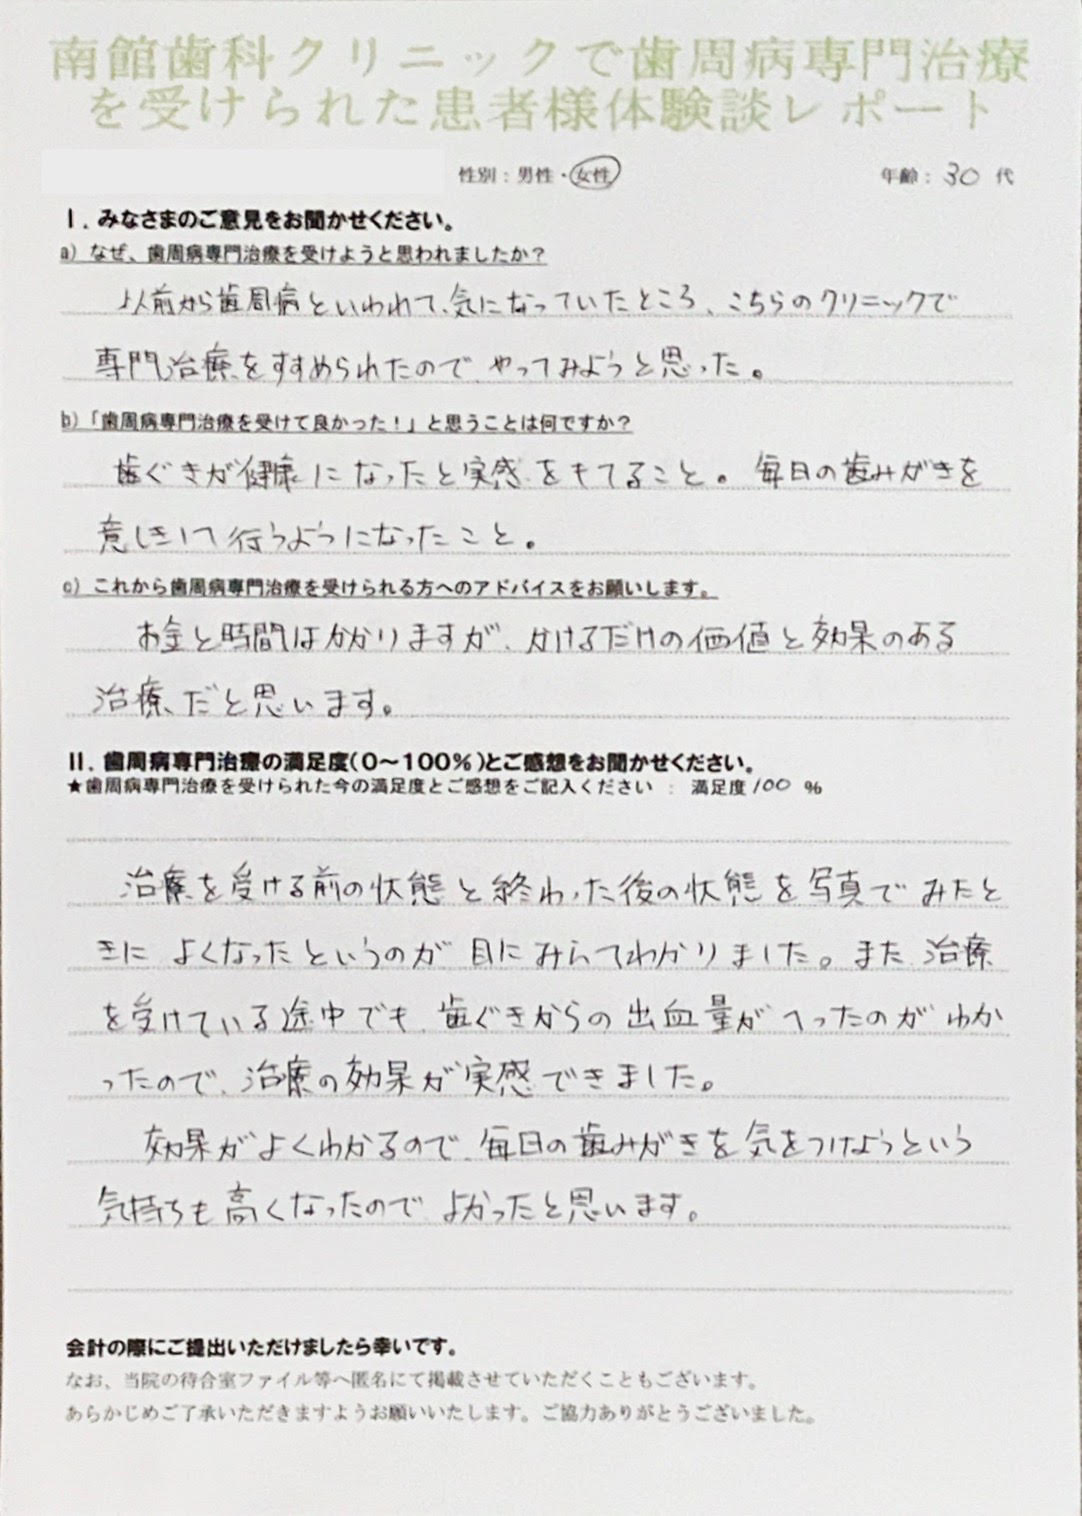 南館歯科クリニックで歯周病専門治療
を受けられた患者様体験談レポート
性別：男性・女性 年齢：30 代
Ⅰ．みなさまのご意見をお聞かせください。
a）なぜ、歯周病専門治療を受けようと思われましたか？
以前から歯周病といわれて、気になっていたところ、こちらのクリニックで
専門治療をすすめられたので、やってみようと思った。
b）「歯周病専門治療を受けて良かった！」と思うことは何ですか？
歯ぐきが健康になったと実感をもてること。毎日の歯みがきを
意しきして行うようになったこと。
c）これから歯周病専門治療を受けられる方へのアドバイスをお願いします。
お金と時間はかかりますが、かけるだけの価値と効果のある
治療だと思います。
Ⅱ．歯周病専門治療の満足度（0～100％）とご感想をお聞かせください。
★歯周病専門治療を受けられた今の満足度とご感想をご記入ください ： 満足度 100 ％
治療を受ける前の状態と終わった後の状態を写真でみたと
きに よくなったというのが 目にみえてわかりました。また、治療
を受けている途中でも、歯ぐきからの出血量がへったのがわか
ったので、治療の効果が実感できました。
効果がよくわかるので、毎日の歯みがきを気をつけようという
気持ちも高くなったので よかったと思います。
会計の際にご提出いただけましたら幸いです。
なお、当院の待合室ファイル等へ匿名にて掲載させていただくこともございます。
あらかじめご了承いただきますようお願いいたします。ご協力ありがとうございました。